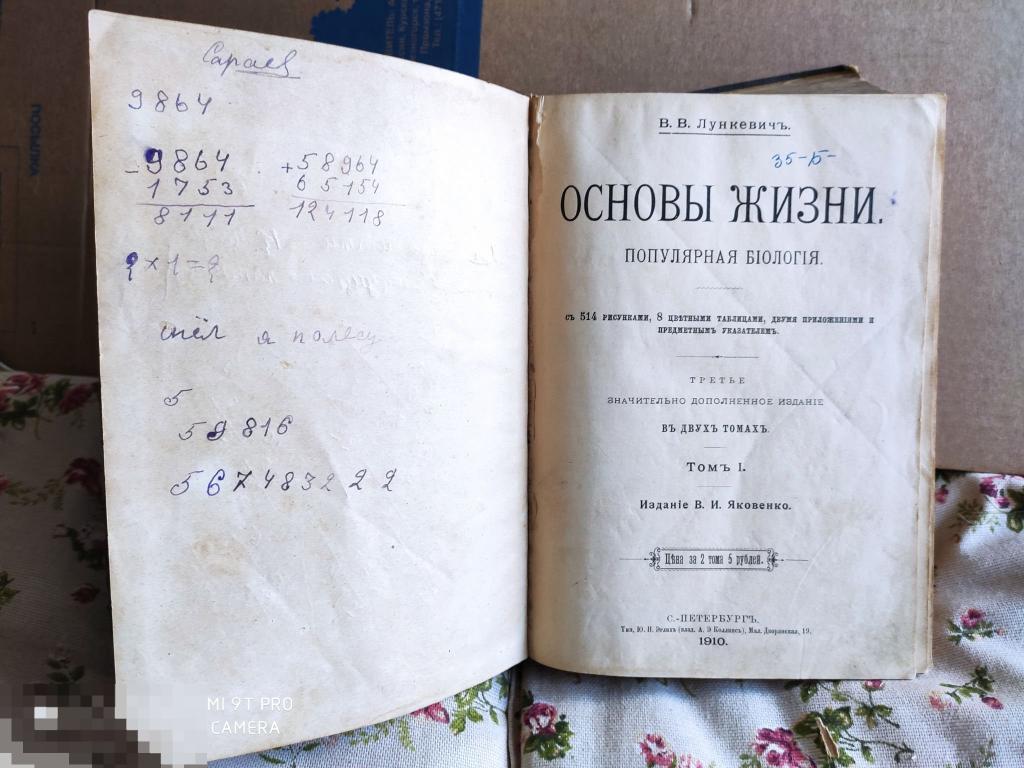 Сараев
9864
-9864
1753
8111
+58964
65154
124118
2×1=2
шёл я полесу
5
59816
5674832 2 2
В. В. Лункевичъ.
35-Б-
ОСНОВЫ ЖИЗНИ.
ПОПУЛЯРНАЯ БІОЛОГІЯ.
СЪ 514 РИСУНКАМИ, 8 ЦВѢТНЫМИ ТАБЛИЦАМИ, ДВУМЯ ПРИЛОЖЕНІЯМИ И
ПРЕДМЕТНЫМЪ УКАЗАТЕЛЕМЪ.
ТРЕТЬЕ
ЗНАЧИТЕЛЬНО ДОПОЛНЕННОЕ ИЗДАНІЕ
ВЪ ДВУХЪ ТОМАХЪ.
Томъ I.
Изданіе В. И. Яковенко.
Цѣна за 2 тома 5 рублей.
С.-ПЕТЕРБУРГЪ.
Тип. Ю. Н. Эрлихъ (влад. А. Э. Коллинсъ), Мал. Дворянская, 19.
1910.
MI 9T PRO
CAMERA